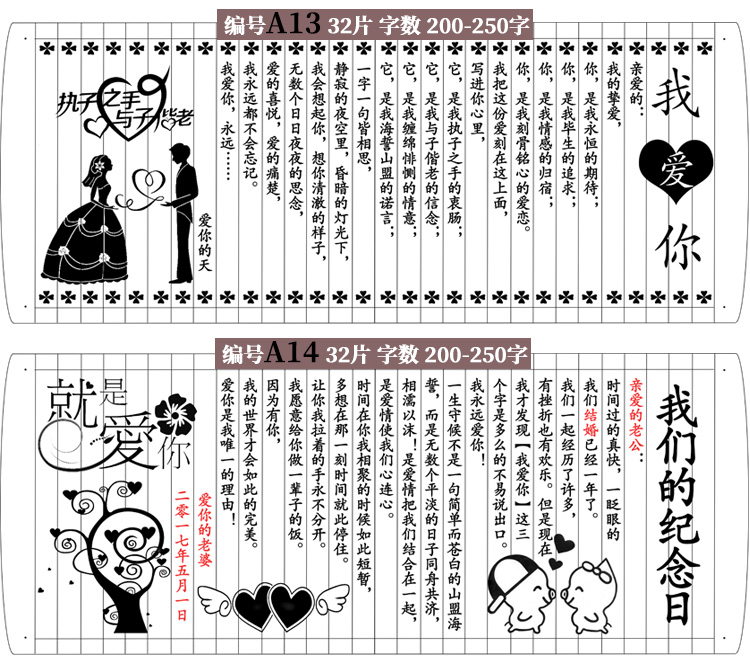 编号A13 32片 字数 200-250字
我爱你
亲爱的：
我的挚爱，
你，是我永恒的期待；
你，是我毕生的追求；
你，是我情感的归宿；
你，是我刻骨铭心的爱恋。
我把这份爱刻在这上面，
写进你心里，
它，是我执子之手的衷肠；
它，是我与子偕老的信念；
它，是我缠绵悱恻的情意；
它，是我海誓山盟的诺言；
一字一句皆相思，
静寂的夜空里，昏暗的灯光下，
我会想起你，想你清澈的样子，
无数个日日夜夜的思念，
爱的喜悦，爱的痛楚，
我永远都不会忘记。
我爱你，永远……
爱你的天
执子之手
与子偕老
编号A14 32片 字数 200-250字
我们的纪念日
亲爱的老公：
时间过的真快，一眨眼的
我们结婚已经一年了。
我们一起经历了许多，
有挫折也有欢乐。但是现在
我才发现【我爱你】这三
个字是多么的不易说出口。
我永远爱你！
一生守候不是一句简单而苍白的山盟海
誓，而是无数个平淡的日子同舟共济，
相濡以沫！是爱情把我们结合在一起，
是爱情使我们心连心。
时间在你我相聚的时候如此短暂，
多想在那一刻时间就此停住。
让你我拉着的手永不分开。
我愿意给你做一辈子的饭。
因为有你，
我的世界才会如此的完美。
爱你是我唯一的理由！
爱你的老婆
二零一七年五月一日
就是爱你